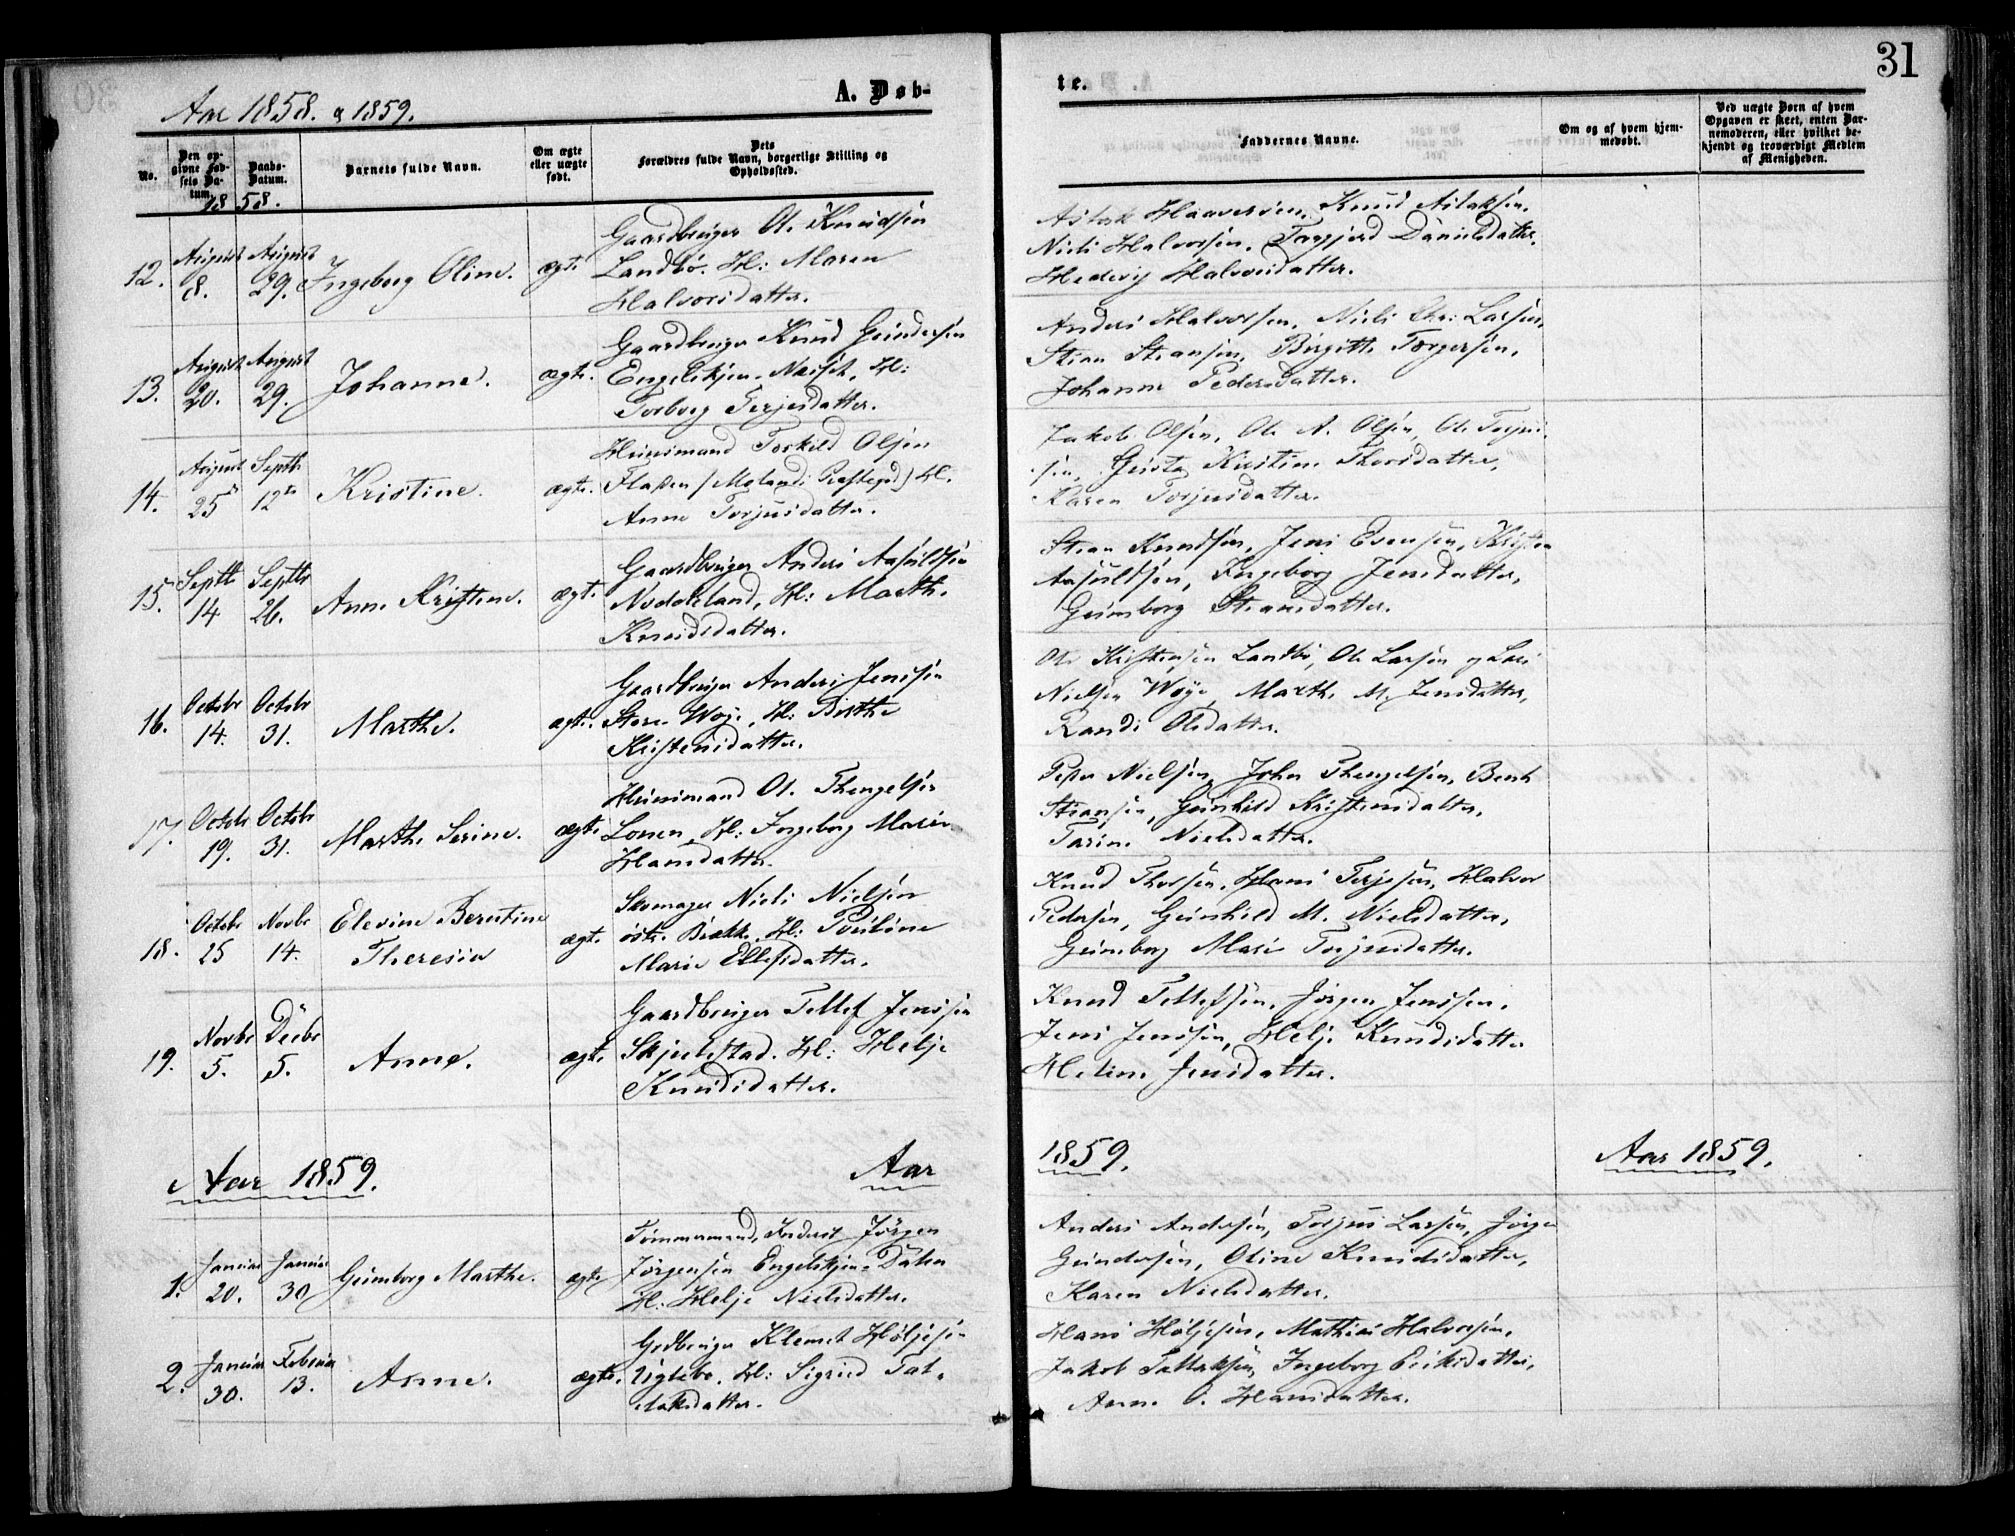 31
A. Døb-
te.
Aar 1858. & 1859.
No.
Den op-
givne Fød-
sels Da-
tum.
Daabs-
Datum.
Barnets fulde Navn.
Om ægte
eller uægte
født.
Dets
Forældres fulde Navn, borgerlige Stilling og
Opholdssted.
Faddernes Navne.
Om og af hvem hjem-
medøbt.
Ved uægte Børn af hvem
Opgaven er skeet, enten Bar-
nemoderen, eller hvilket be-
kjendt og troværdigt Medlem
af Menigheden.
1858.
12. August 8. August 29. Ingeborg Oline. ægte
Gaardbruger Ole Knudsen
Landbö. H: Maren
Halvorsdatter.
Aslak Haaversen, Knud Aslaksen,
Niels Halvorsen, Torgjerd Danielsdatter,
Hedevig Halvorsdatter.
13. August 20. August 29. Johanne. ægte.
Gaardbruger Knud Gundersen
Engelskjøn, H:
Torborg Terjesdatter.
Anders Halvorsen, Niels Chr: Larsen,
Stian Stiansen, Birgitte Torgersen,
Johanne Pedersdatter.
14. August 25 Septb 12te Kristine. ægte.
Huusmand Torkild Olsen
H.
Anne Torjusdatter.
Jakob Olsen, Ole A. Olsen, Ole Torju-
sen, Kirstine Thorsdatter,
Karen Torjusdatter.
15. Septb 14 Septbr 26. Anne Kristine. ægte.
Gaardbruger Anders Aasuldsen
Noddeland, H: Marthe
Knudsdatter.
Stian Knudsen, Jens Evensen, Kristen
Aasuldsen, Ingeborg Jensdatter,
Gunborg Stiansdatter.
16. Octobr 14. Octobr 31. Marthe. ægte.
Gaardbruger Anders Jensen
Store Woje, H: Birthe
Kristensdatter.
Ole Kristensen Landbö, Ole Larsen og Lars
Nielsen Woje, Marthe M. Jensdatter,
Randi Olsdatter.
17. Octobr 19. Octobr 31. Marthe Serine. ægte
Huusmand Ole Thengelsen
Lonen, H: Ingeborg Marie
Hansdatter.
Peder Nielsen, John Thengelsen, Bent
Stiansen, Gunhild Kristensdatter,
Tarine Nielsdatter.
18. Octobr 25 Novbr 14. Elevine Berntine
Theresia ægte.
Skomager Niels Nielsen
östre Bække, H: Pouline
Marie Ellefsdatter.
Knud Thorsen, Hans Terjesen, Halvor
Pedersen, Gunhild M. Nielsdatter,
Gunborg Marie Torjusdatter.
19. Novbr 5. Decbr 5. Anne. ægte.
Gaardbruger Tellef Jensen
Skjulestad. H: Helje
Knudsdatter.
Knud Tellefsen, Jørgen Jensen,
Jens Jensen, Helje Knudsdatter
Heline Jensdatter.
Aar 1859. Aar 1859. Aar 1859.
1. Januar 20. Januar 30 Gunborg Marthe. ægte
Tømmermand, Inderst Jørgen
Jørgensen Engelskjøn-Dalen
H: Helje Nielsdatter.
Anders Andersen, Torjus Larsen, Jørgen
Gundersen, Oline Knudsdatter,
Karen Nielsdatter.
2. Januar 30. Februar 13. Anne. ægte.
Grdbruger Klemet Høljesen
Uglebo, H: Sigrid Tal-
laksdatter.
Hans Høljesen, Mathias Halvorsen,
Jakob Tallaksen, Ingeborg Eriksdatter,
Anne O. Hansdatter.